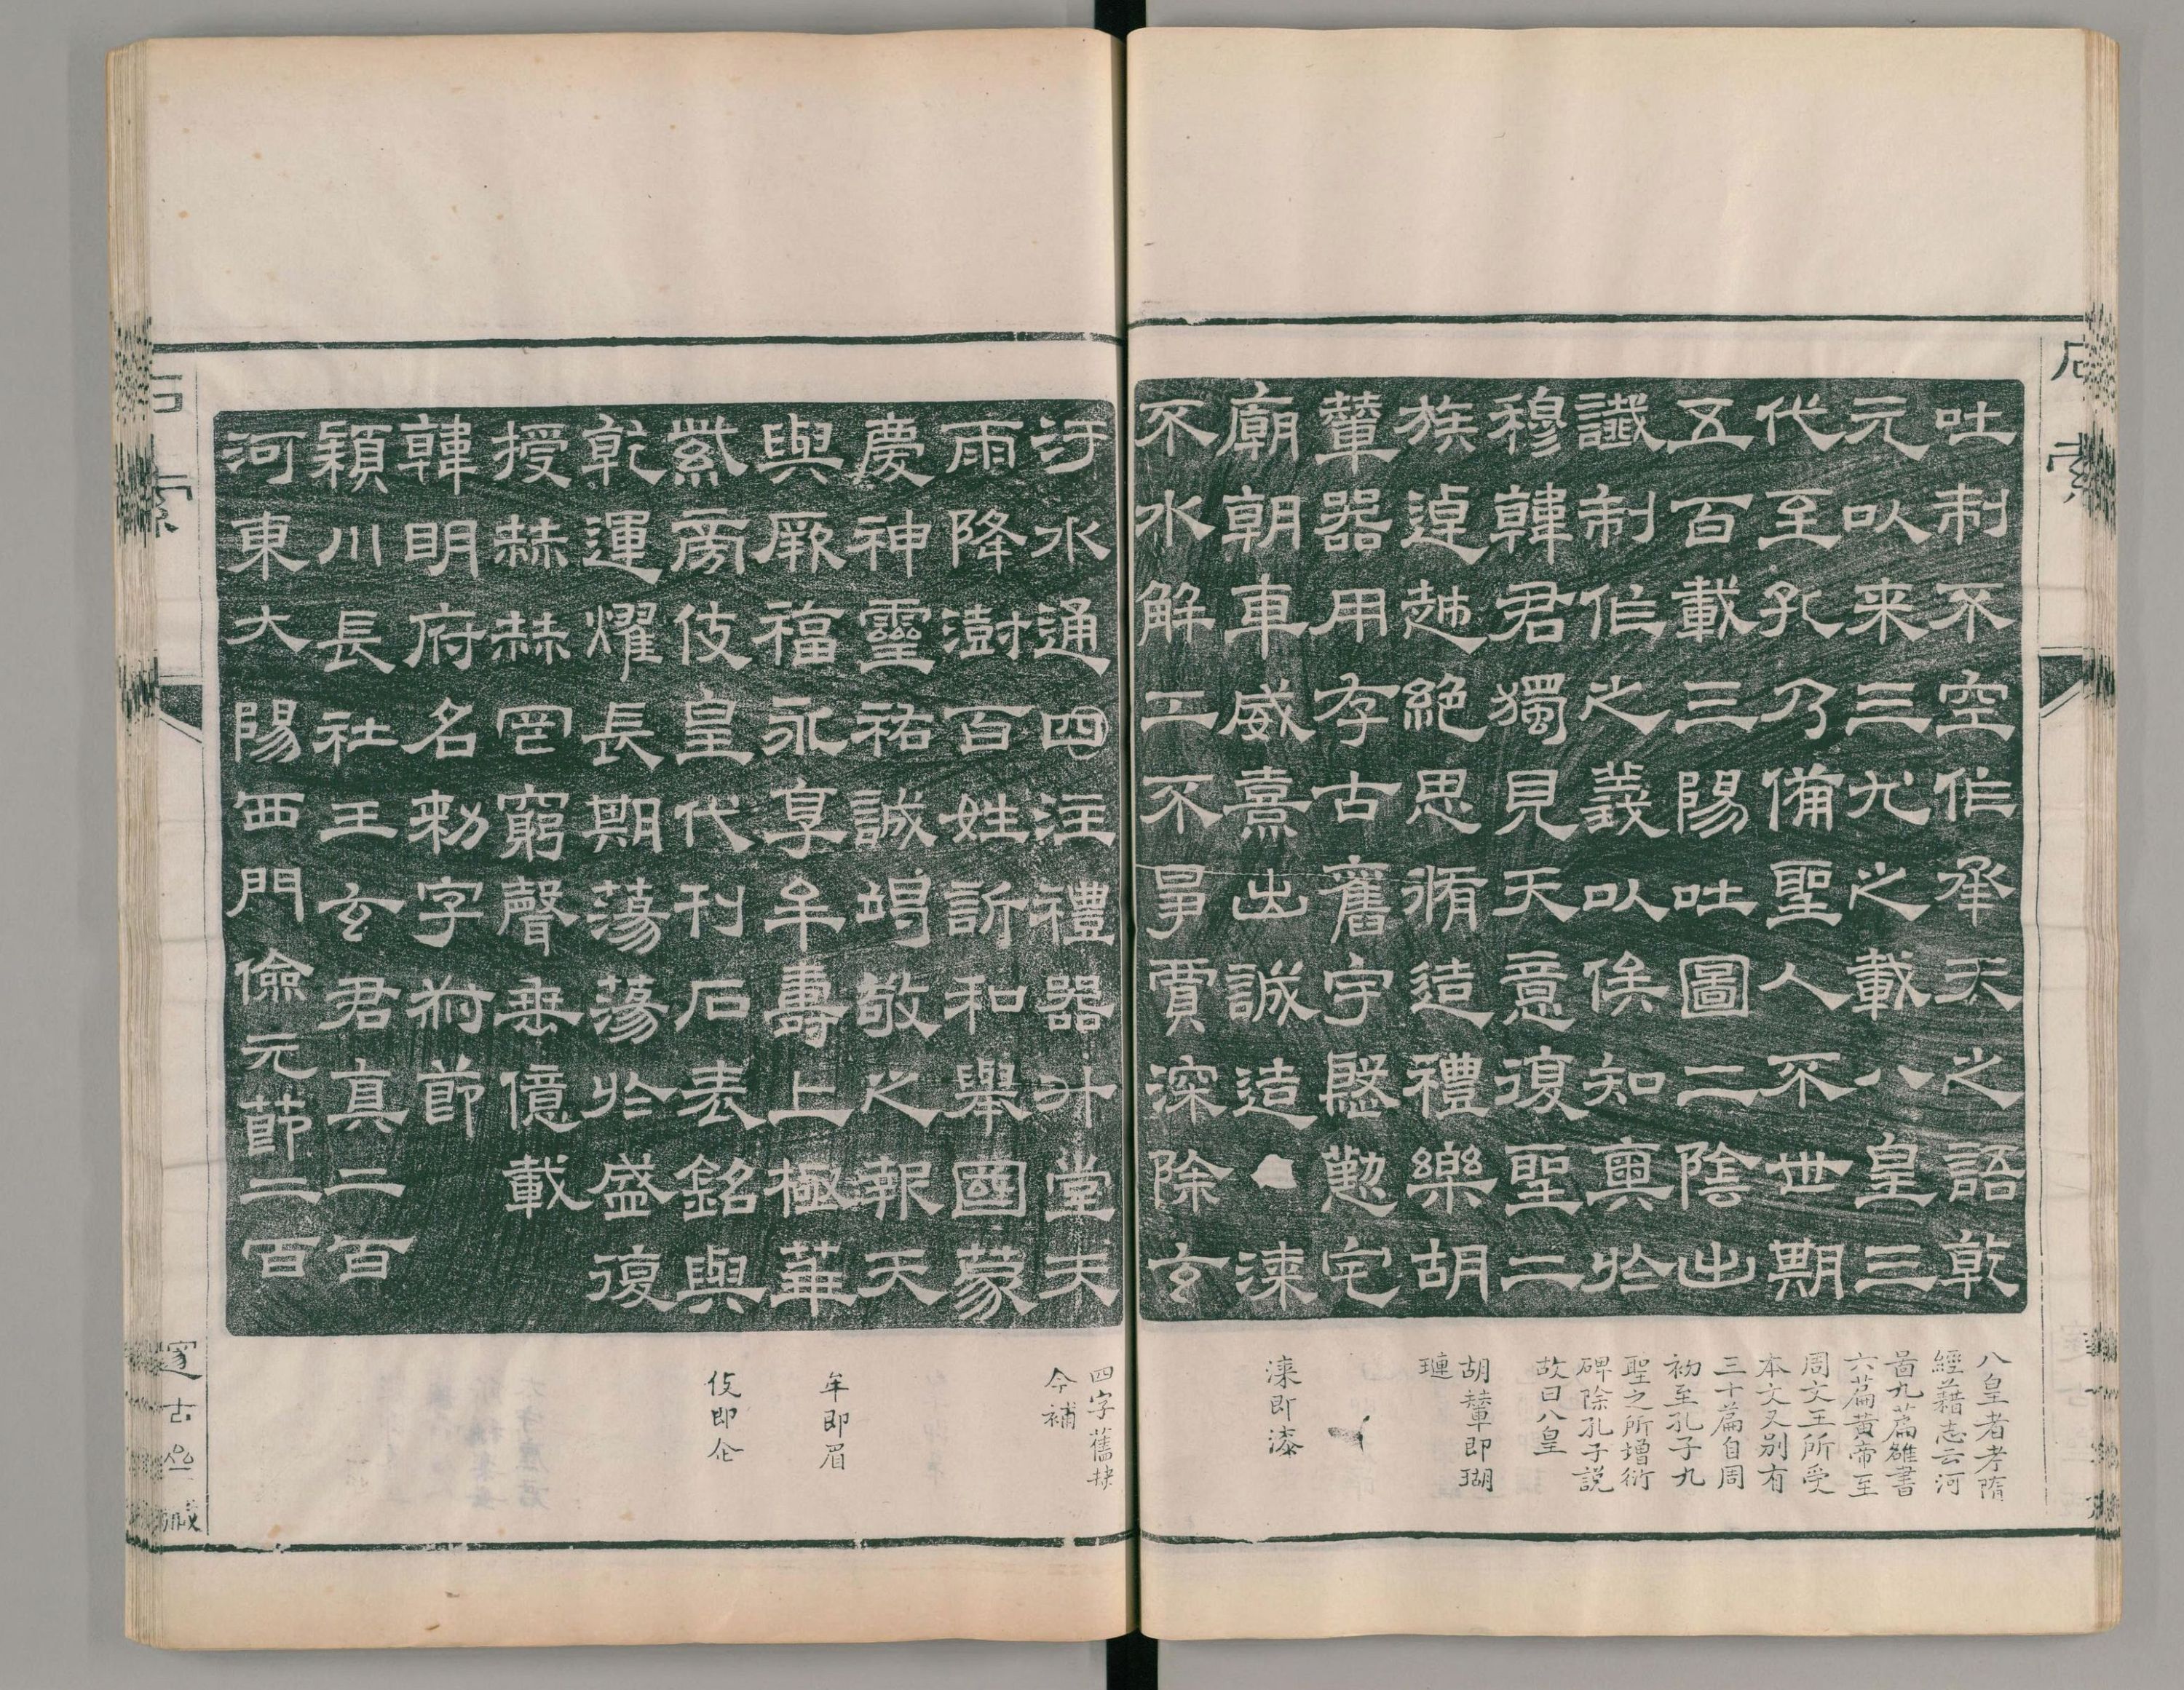 吐制不空作承天之語乾
元以来三九之載八皇三
代至孔乃備聖人不世期
五百載三陽吐圖二陰出
讖制作之義以俟知奧於
穆韓君獨見天意復聖二
族逴越絕思脩造禮樂胡
輦器用存古舊宇慇懃宅
廟朝車威熹出誠造漆
不水解工不爭賈深除玄
八皇者考隋
經藉志云河
啚九萹雒書
六萹黃帝至
周文王所受
本文又别有
三十萹自周
初至孔子九
聖之所增衍
碑除孔子説
故曰八皇
胡輦即瑚
璉
漆即漆
汙水通四注禮器升堂天
雨降澍百姓訢和舉國蒙
慶神靈祐誠竭敬之報天
與厥福永享牟壽上極華
紫旁伎皇代刊石表銘與
乾運燿長期蕩蕩於盛復
授赫赫罔窮聲垂億載
韓明府名勑字叔節
潁川長社王玄君真二百
河東大陽西門儉元節二百
四字舊抶
今補
牟即眉
伎即仚
石索
邃古𠫤臧